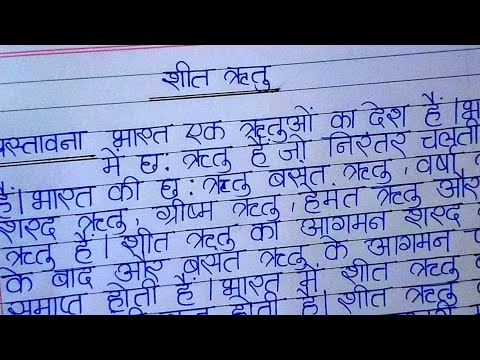 शीत ऋतु
प्रस्तावना भारत एक ऋतुओं का देश हैं।
में छ: ऋतु हैं जो निरंतर चलती
हैं। भारत की छ: ऋतु बसंत ऋतु, वर्षा
शरद ऋतु, ग्रीष्म ऋतु, हेमंत ऋतु और
ऋतु हैं। शीत ऋतु का आगमन शरद
के बाद और बसंत ऋतु के आगमन
समाप्त होती हैं। भारत में शीत ऋतु
होती हैं। शीत ऋतु